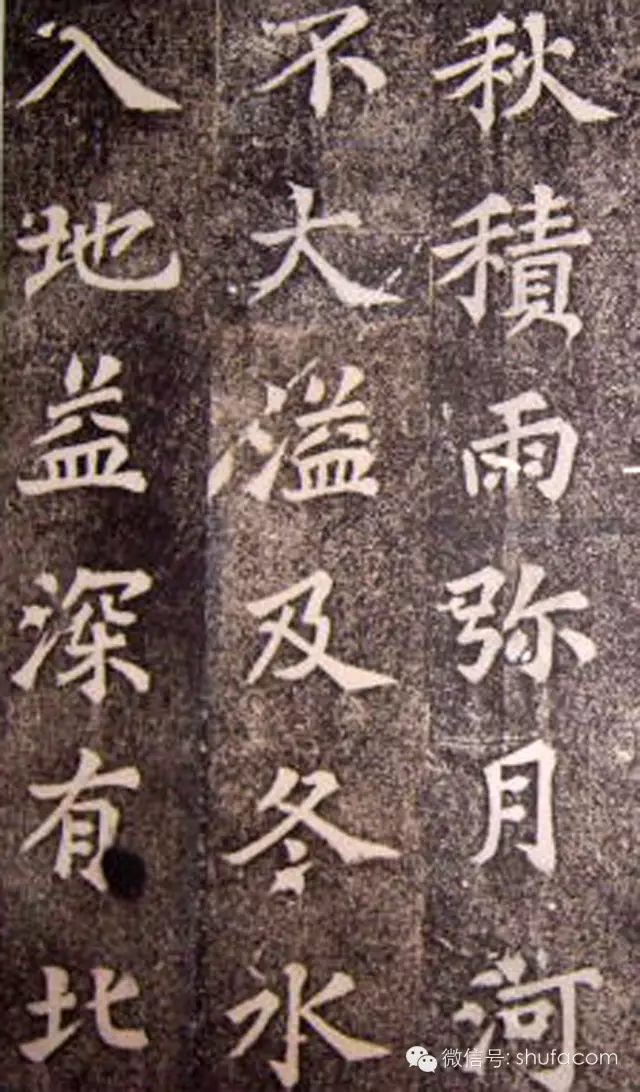 秋積雨弥月河
不大溢及冬水
入地益深有北
微信号: shufacom